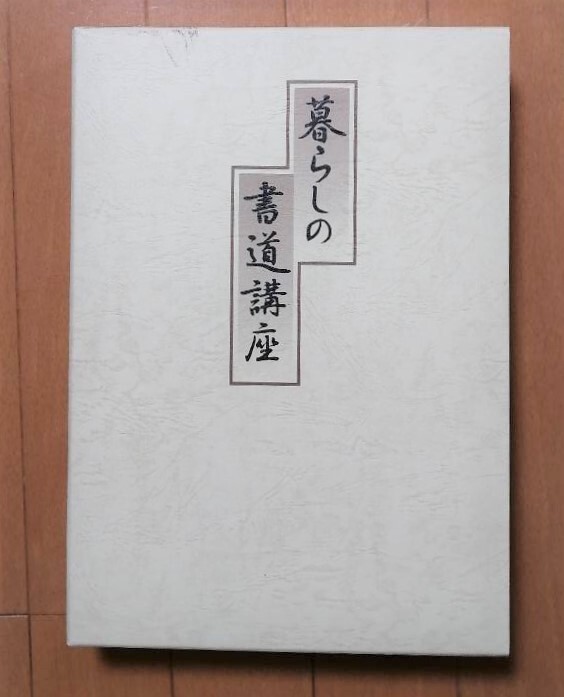 暮らしの
書道講座